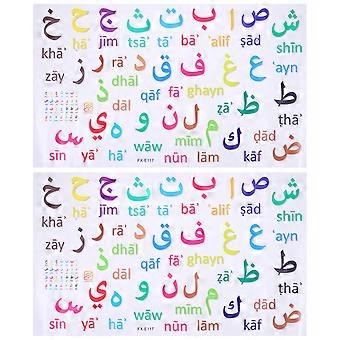 خ ح ج ث ت ب ا ص ش
khā' ḥā' jīm tsā' tā' bā' 'alif ṣād shīn
ز ر ذ د ق ف غ ع
zāy rā' dhāl dāl qāf fā' ghayn 'ayn
س ي ه و ن ل م ك ط ظ ض
thā' ḍād
sīn yā' hā' wāw nūn lām kāf
FX-E117
خ ح ج ث ت ب ا ص ش
khā' ḥā' jīm tsā' tā' bā' 'alif ṣād shīn
ز ر ذ د ق ف غ ع
zāy rā' dhāl dāl qāf fā' ghayn ẓā' 'ayn
س ي ه و ن ل م ك ط ظ ض
mīm ṭā' ḍād
sīn yā' hā' wāw nūn lām kāf
FX-E117